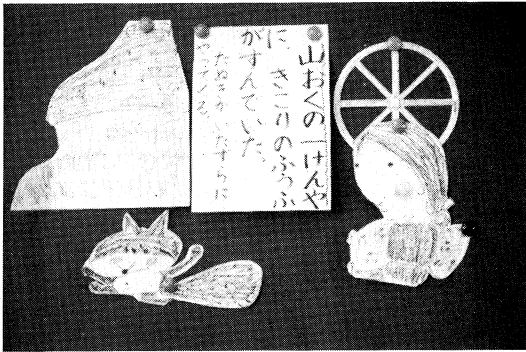 山おくの一けんや
に、きこりのふうふ
がすんでいた。
たぬきがいたずらに
やってくる。